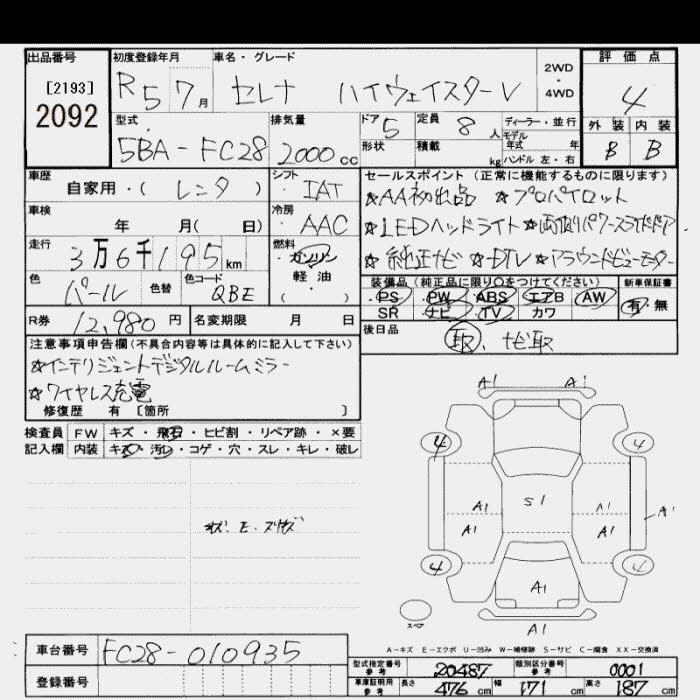 出品番号 初度登録年月 車名・グレード 評価点
[2193]
2092
R5 7月 セレナ ハイウェイスターV 2WD・4WD 4
型式 排気量 ドア 定員 ディーラー・並行 外装 内装
5BA-FC28 2000cc 5 8人 モデル年式 年 B B
形状 積載 kg ハンドル 左・右
車歴 シフト セールスポイント (正常に機能するものに限ります)
自家用・(レンタ) IAT ☆AA初出品 ☆プロパイロット
車検 冷房 ☆LEDヘッドライト☆両側パワースライドドア
年 月(日) AAC ☆純正ナビ ☆DTV ☆アラウンドビューモニター
走行 燃料
3万6千195km ガソリン・軽油・( )
色 色替 色コード 装備品 (純正品に限り○をつけてください) 新車保証書
パール QBE PS PW ABS エアB AW 有・無
SR ナビ TV カワ
R券 12,980円 名変期限 月 日 後日品
取、ナビ取
注意事項申告欄 (不具合内容等は具体的に記入して下さい)
☆インテリジェントデジタルルームミラー
☆ワイヤレス充電
修復歴 有 [箇所 ]
検査員 FW キズ・飛石・ヒビ割・リペア跡・×要
記入欄 内装 キズ・汚レ・コゲ・穴・スレ・キレ・破レ
A1 A1
4 4
A1 S1 A1 A1
A1 A1
4 A1 4
スペア A1
A-キズ E-エクボ U-凹み W-補修跡 S-サビ C-腐食 XX-交換済
車台番号 FC28-010935
登録番号
型式指定番号 参考 20487 類別区分番号 参考 0001
車庫証明用 参考 長さ 476cm 幅 171cm 高さ 187cm